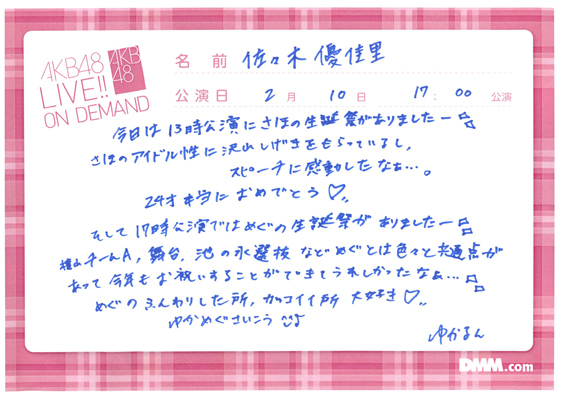 AKB48
LIVE!!
ON DEMAND
AKB
48
名前 佐々木優佳里
公演日 2月10日 17:00公演
今日は13時公演にさほの生誕祭がありましたー♫
さほのアイドル性に沢山しげきをもらっているし、
スピーチに感動したなぁ…。
24才本当におめでとう♡
そして17時公演ではめぐの生誕祭がありましたー♫
横山チームA, 舞台, 池の水選抜などめぐとは色々と共通点が
あって今年もお祝いすることができてうれしかったなぁ…♫
めぐのふんわりした所, カッコイイ所 大好き♡
ゆかめぐさいこう
ゆかるん
DMM.com